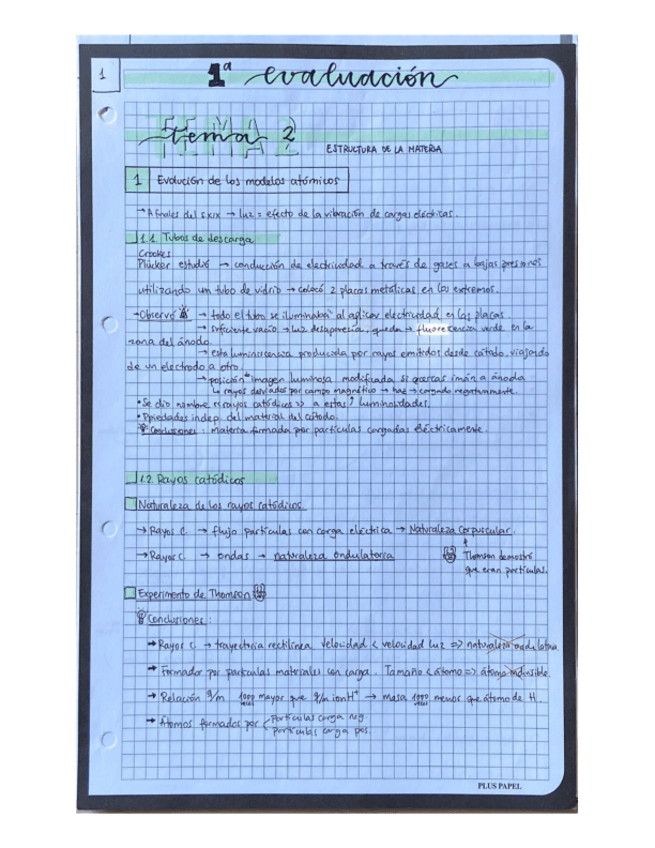 1
1ª evaluación
tema 2
TEMA 2
ESTRUCTURA DE LA MATERIA
1 Evolución de los modelos atómicos
→ A finales del s.XIX → luz = efecto de la vibración de cargas eléctricas.
1.1. Tubos de descarga
Crookes
Plücker estudió → conducción de electricidad a través de gases a bajas presiones
utilizando un tubo de vidrio → colocó 2 placas metálicas en los extremos.
→ Observó → todo el tubo se iluminaba al aplicar electricidad en las placas.
→ suficiente vacío → luz desaparecía, queda → fluorescencia verde en la
zona del ánodo.
→ esta luminiscencia producida por rayos emitidos desde cátodo, viajando
de un electrodo a otro.
→ posición imagen luminosa modificada si acercas imán a ánodo
↳ rayos desviados por campo magnético → haz cargado negativamente.
• Se dio nombre «rayos catódicos» a estas luminosidades.
• Ppiedades indep. del material del cátodo.
Conclusiones: materia formada por partículas cargadas eléctricamente.
1.2. Rayos catódicos
Naturaleza de los rayos catódicos
→ Rayos C. → flujo partículas con carga eléctrica → Naturaleza Corpuscular.
→ Rayos C. → ondas → naturaleza ondulatoria
Thomson demostró
que eran partículas.
Experimento de Thomson
Conclusiones:
→ Rayos C. → trayectoria rectilínea. Velocidad < velocidad luz => naturaleza ondulatoria
→ Formador por partículas materiales con carga. Tamaño < átomo => átomo indivisible.
→ Relación q/m 1000 veces mayor que q/m ion H⁺ → masa 1000 veces menor que átomo de H.
→ Átomos formados por { Partículas carga neg.
Partículas carga pos.
PLUS PAPEL